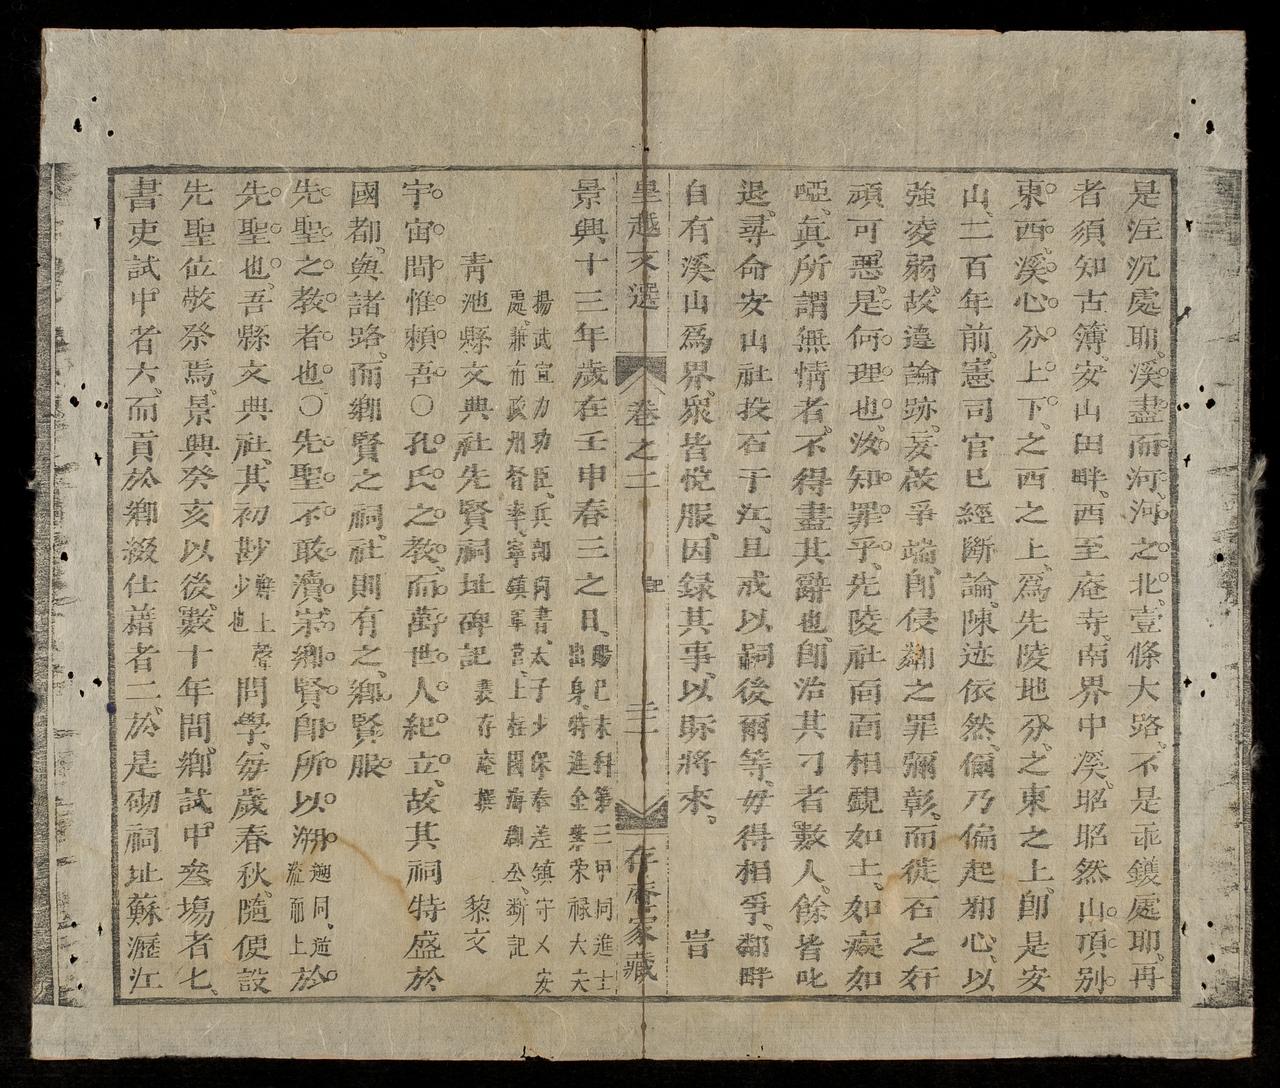 是汪沉處耶。溪盡而河。河之北。壹條大路。不是乖鑊處耶。再
者須知古簿。安山田畔。西至庵寺。南界中溪。昭昭然山頂別
東西。溪心分上下。之西之上。爲先陵地分。之東之上。卽是安
山。二百年前。憲司官已經斷論。陳迹依然。儞乃偏起邪心。以
強凌弱。故違論跡。妄啟爭端。卽侵疆之罪彌彰。而徙石之奸
頑可惡。是何理也。汝知罪乎。先陵社面面相覷。如土。如癡。如
啞。眞所謂無情者。不得盡其辭也。卽治其刁者數人。餘皆叱
退。尋命安山社投石于江。且戒以嗣後爾等。毋得相爭。鄰畔
自有溪山爲界。衆皆悅服。因録其事。以貽將來。 旹
皇越文選 卷之二 記 三十 存庵家藏
景興十三年歲在壬申春三之日。賜己未科第三甲同進士
出身。特進金紫榮祿大夫
揚武宣力功臣。兵部尚書。太子少保奉差鎮守乂安
處。兼布政州督率。寧鎮軍營。上柱國海郡公。撰記
青池縣文典社先賢祠址碑記 裴存庵撰 黎文
宇宙間惟賴吾〇孔氏之教。而萬世人紀立。故其祠特盛於
國都。與諸路。而鄉賢之祠。社則有之。鄉賢服
先聖之教者也〇先聖不敢瀆。崇鄉賢。卽所以溯遡同。道於
流而上
先聖也。吾縣文典社。其初尠鮮上聲
少也問學。每歲春秋。隨便設
先聖位敬祭焉。景興癸亥以後。數十年間。鄉試中叄場者七。
書吏試中者六。而貢於鄉綴仕藉者二。於是砌祠址蘇瀝江